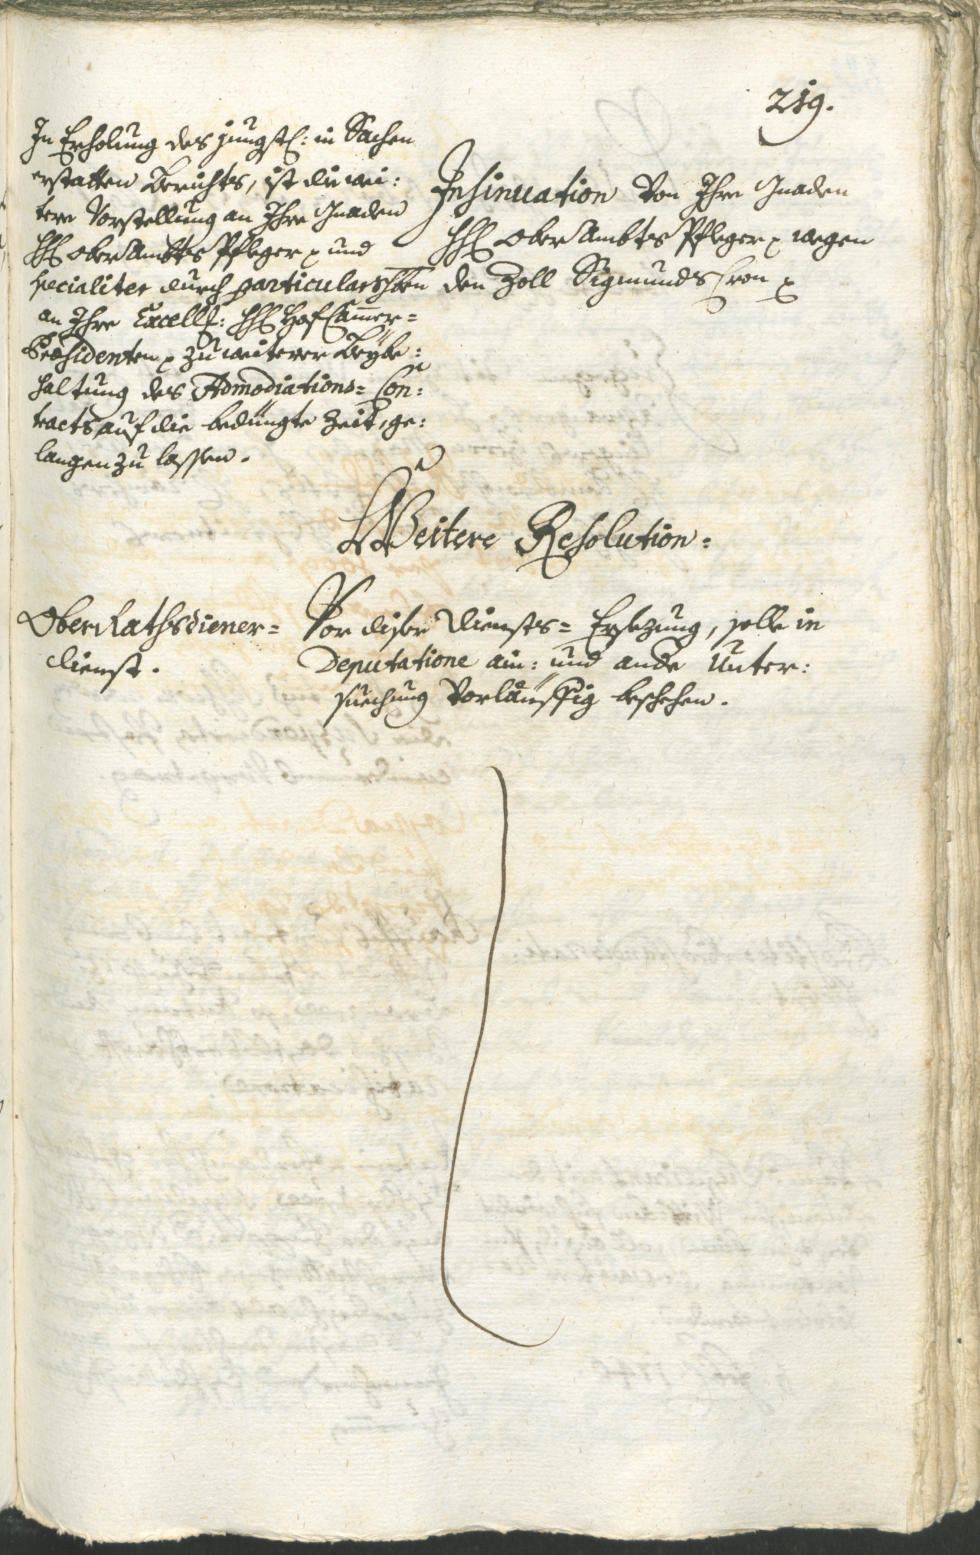 219.
In Erholung des jüngst: in Sachen
erstatten Berichts, ist die wei:
tere Vorstellung an Ihre Gnaden
HH Ober Ambts Pfleger und
specialiter durch particular Schreiben
an Ihre Excell: HH Hof Cammer=
Præsidenten zu weiterer Beybe:
haltung des Admodiations= Con:
tracts auf die bedüngte Zeit, ge:
langen zu lassen.
Insinuation von Ihre Gnaden
HH Ober Ambts Pfleger wegen
den Zoll Sigmunds Cron
Weitere Resolution:
Ober Rathsdiener=
dienst.
Vor diser Diensts= Ersezung, solle in
Deputatione ain: und ande Unter:
suechung vorläuffig beschehen.